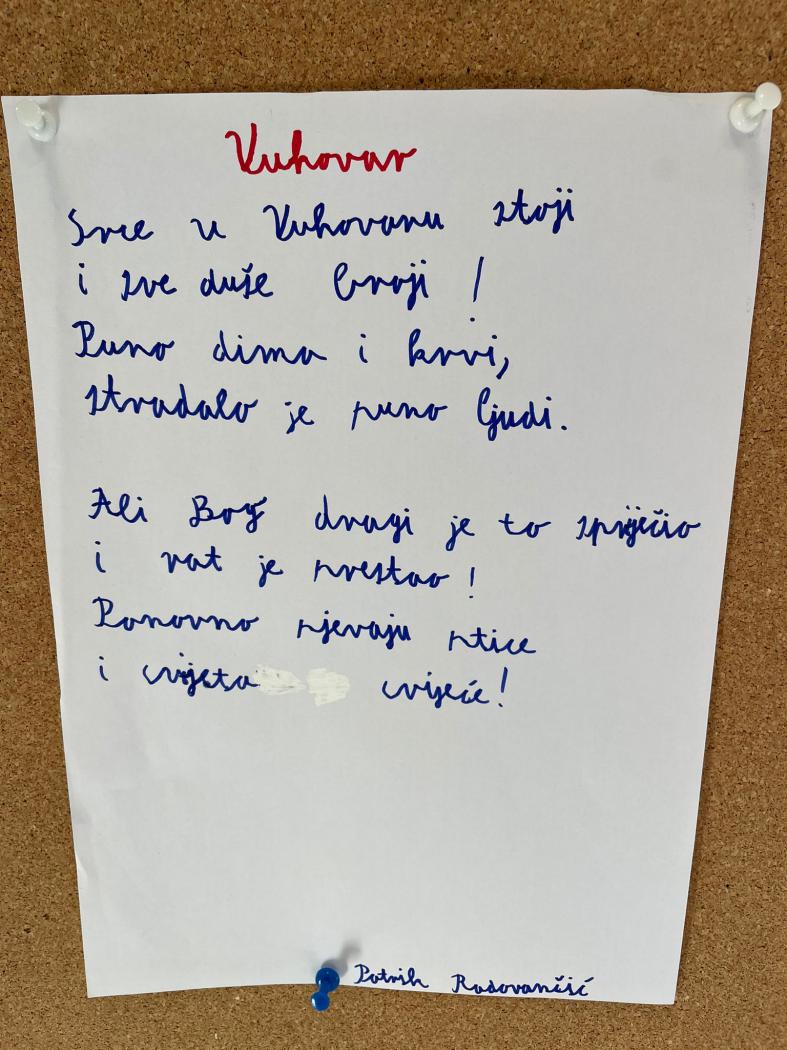 Vukovar
Srce u Vukovaru stoji
i sve duše broji!
Puno dima i krvi,
stradalo je puno ljudi.
Ali Bog dragi je to spriječio
i rat je prestao!
Ponovno pjevaju ptice
i cvijeta cvijeće!
Patrik Radovančić